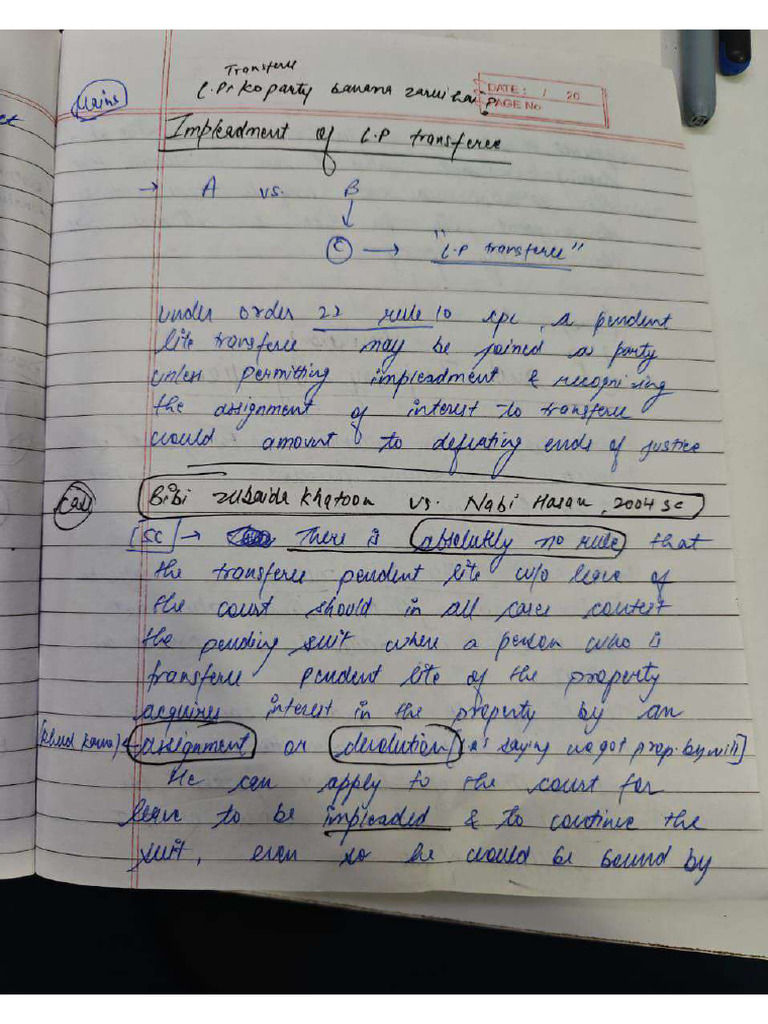 Transferee
L.P. ko party banana zaruri hai?
DATE: / 20
PAGE No.
Mains
Impleadment of L.P transferee
→ A vs. B
↓
C → "L.P transferee"
under order 22 rule 10 cpc, a pendent
lite transferee may be joined as party
unless permitting impleadment & recognizing
the assignment of interest to transferee
would amount to defeating ends of justice
Case
Bibi Zubaida Khatoon vs. Nabi Hasan, 2004 SC
[SC] → There is absolutely no rule that
the transferee pendent lite w/o leave of
the court should in all cases contest
the pending suit where a person who is
transferee pendent lite of the property
acquires interest in the property by an
[khud karna] ← assignment or devolution [as saying u got prop. by will]
He can apply to the court for
leave to be impleaded & to continue the
suit, even so he would be bound by